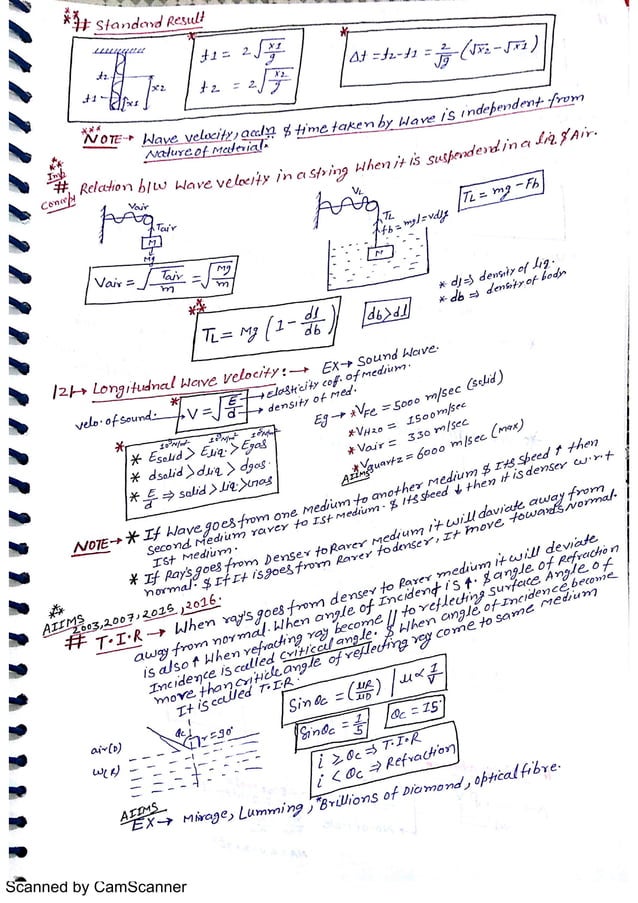 *** # Standard Result
t2
t1
x1
x2
t1 = 2√(x1/g)
t2 = 2√(x2/g)
* Δt = t2-t1 = 2/√g (√x2 - √x1)
*** NOTE → Wave velocity, accln & time taken by wave is independent from
Nature of Material.
** Imp Concept # Relation b/w Wave velocity in a string When it is suspended in a liq & Air.
Vair
Tair
M
Mg
Vair = √(Tair/m) = √(Mg/m)
VL
TL
fb = mgl = vdlg
M
TL = mg - Fb
* dl ⇒ density of liq.
* db ⇒ density of body
** TL = Mg (1 - dl/db)
db > dl
12) → Longitudnal Wave Velocity :→ EX → Sound Wave.
velo. of sound. V = √(E/d) → Elasticity cof. of medium.
→ density of med.
* Esolid > Eliq > Egas
* dsolid > dliq > dgas
* E/d ⇒ solid > liq >
Eg → *VFe = 5000 m/sec (solid)
*VH2O = 1500 m/sec
*Vair = 330 m/sec
AIIMS *Vquartz = 6000 m/sec (max)
NOTE → * If Wave goes from one Medium to another medium & Its speed ↑ then
second Medium raver to Ist Medium. & Its speed ↓ then it is denser w.r.t
Ist Medium.
* If Ray's goes from Denser to Rarer Medium it will daviate away from
normal. & If It is goes from Rarer to denser, It move towards Normal.
** AIIMS 2003, 2007, 2015, 2016.
# T.I.R → When ray's goes from denser to Rarer medium it will deviate
away from normal. When angle of Incident is ↑. & angle of Refraction
is also ↑ When refracting ray become || to reflecting surface Angle of
Incidence is called critical angle. & When angle of Incidence become
more than criticle angle of reflecting ray come to same Medium
It is called T.I.R.
Sin θc = (μR/μD) | μ ∝ 1/V
Sin θc = 1/5
θc = 15°
i ≥ θc ⇒ T.I.R
i < θc ⇒ Refraction
θc
r = 90°
air(D)
W(R)
AIIMS
EX → Mirage, Lumming, *Brillions of Diamond, optical fibre.
Scanned by CamScanner